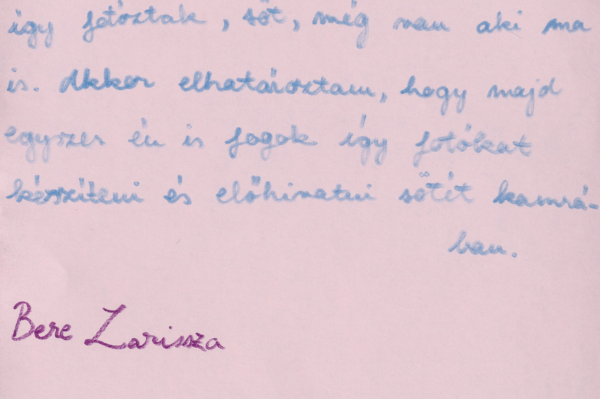 így fotóztak, sőt, még van aki ma
is. Akkor elhatároztam, hogy majd
egyszer én is fogok így fotókat
készíteni és előhivatni sötét kamrá-
ban.
Bere Larissza